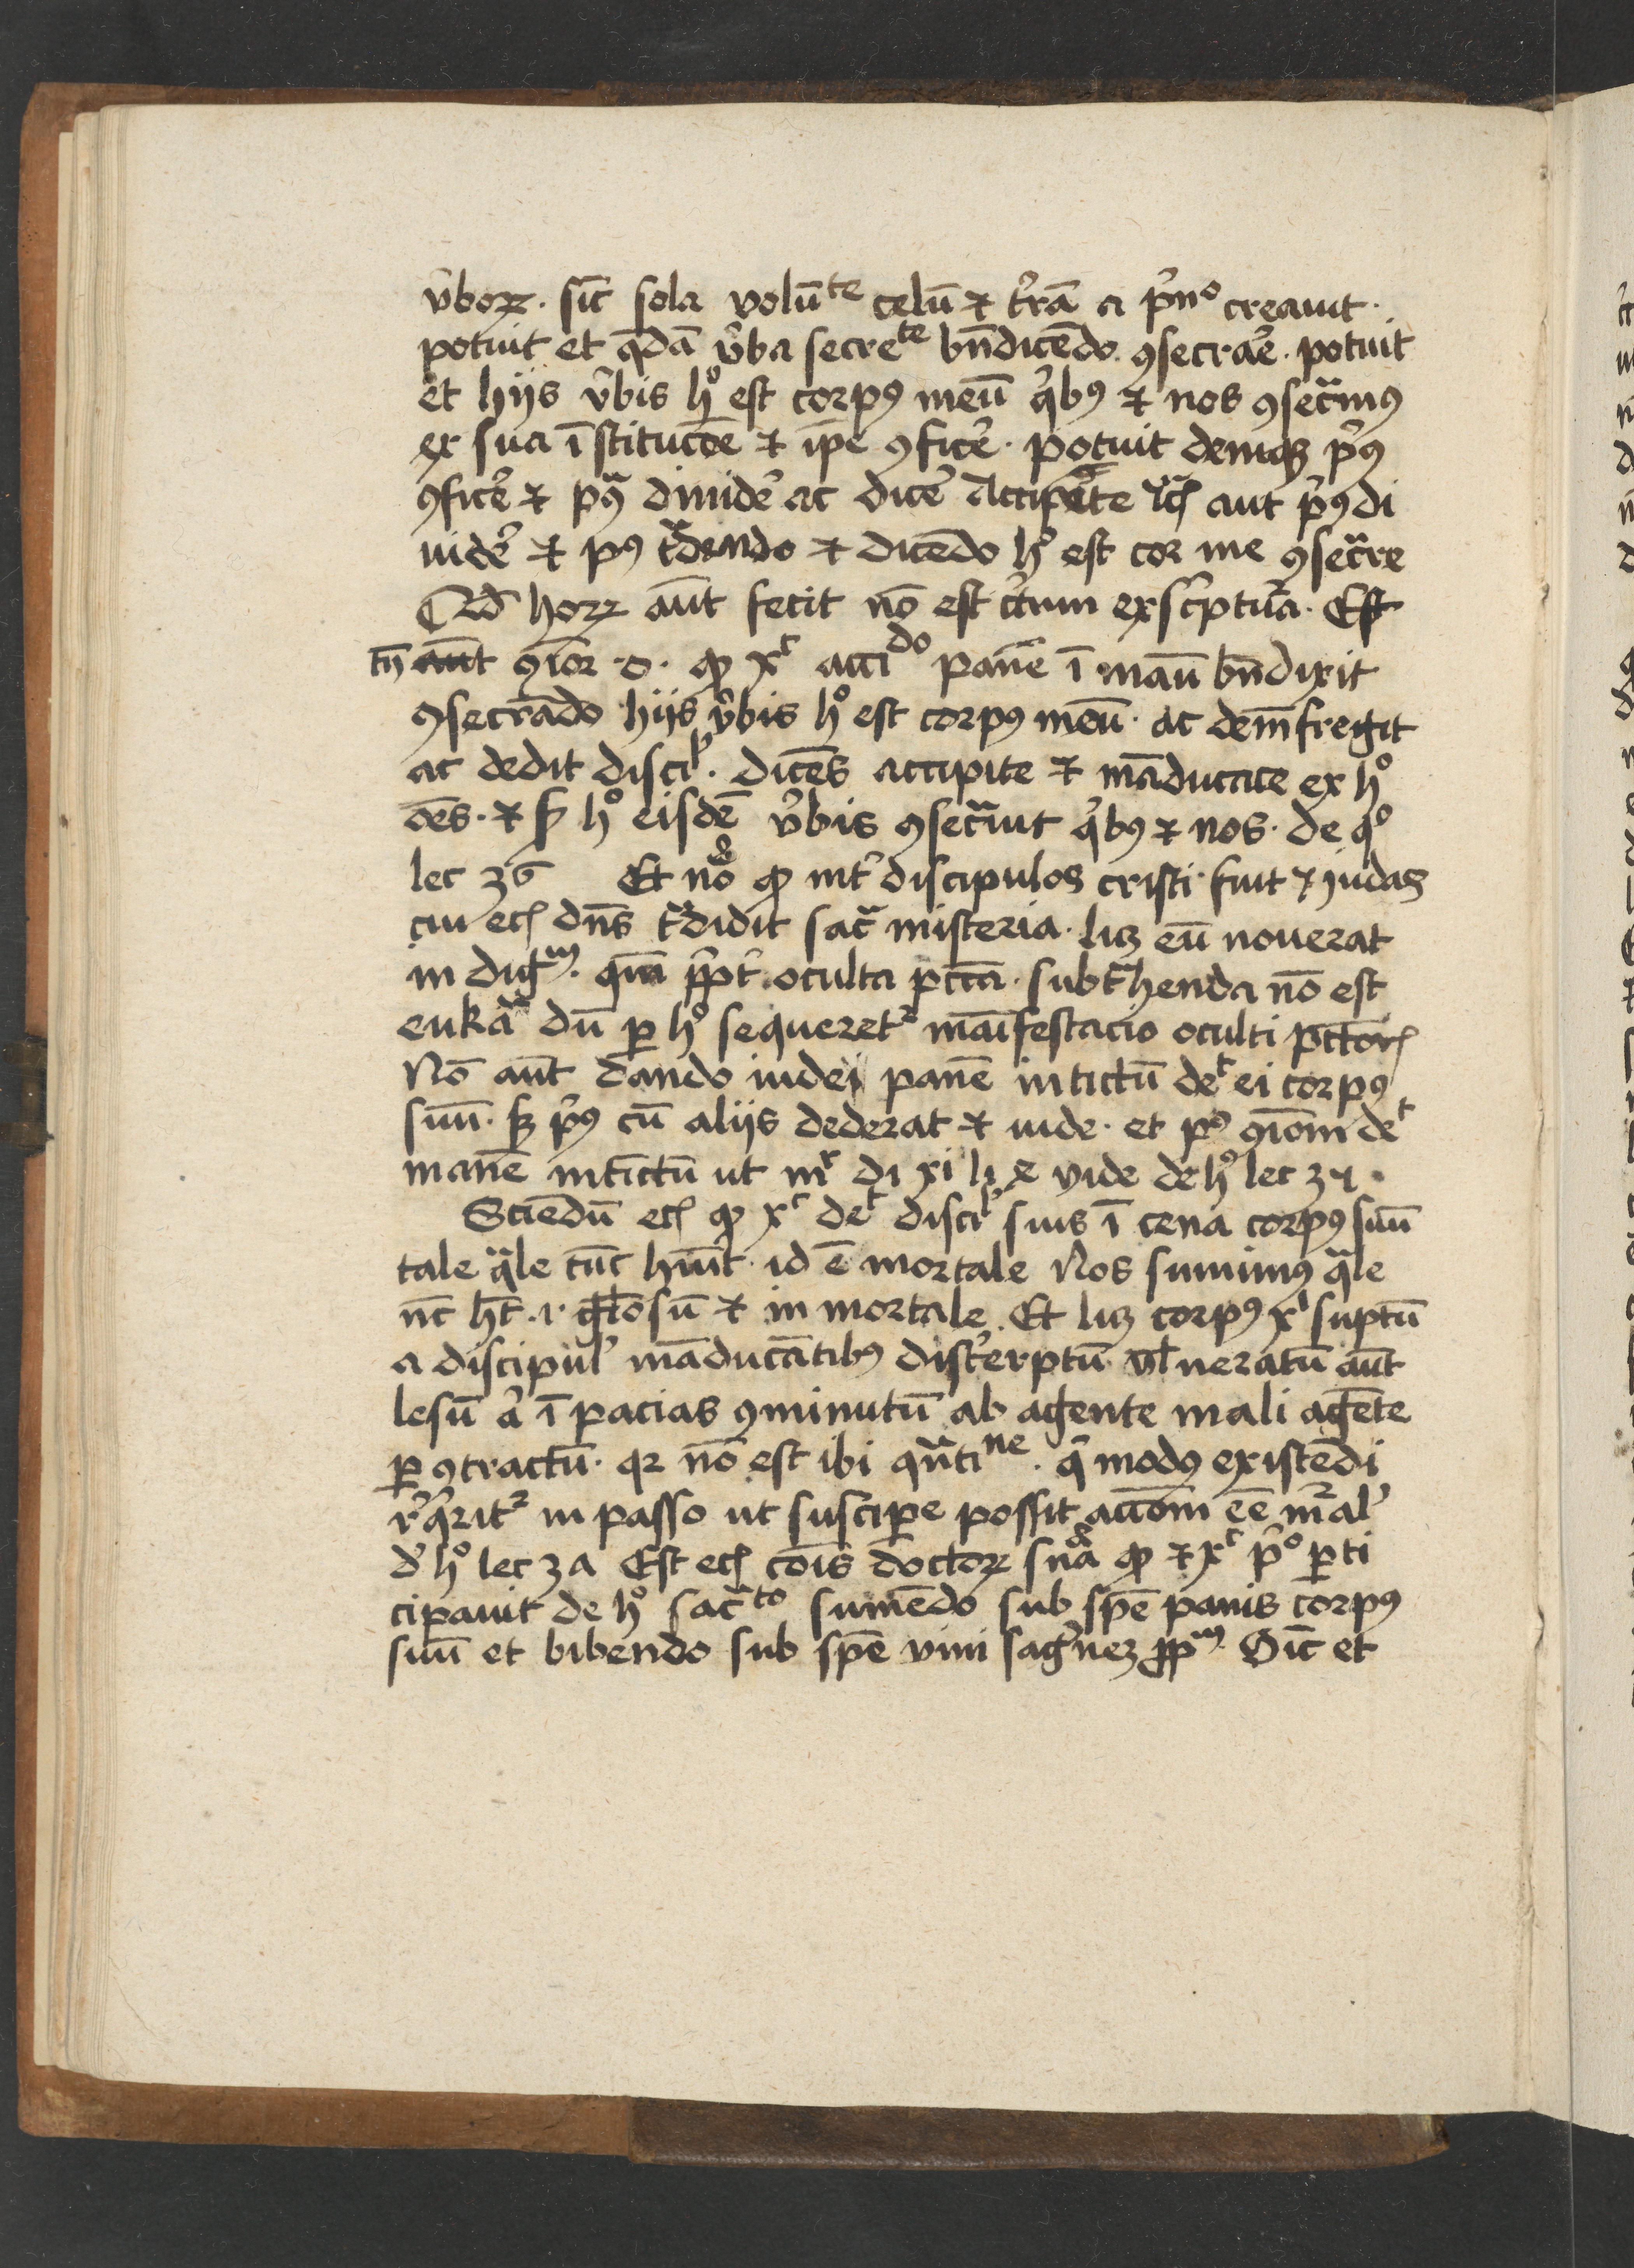 v̉boꝝ. sic̄ sola volūᵗᵉ celū ⁊ t̉rā a p̉nº creauit.
potuit et q̄dā v̉ba secreᵗᵉ bn̄dicēdo ꝯsecrar̉e. potuit
et hijs v̉bis hº est corpꝰ meū qⁱbꝰ ⁊ nos ꝯsecᵃmꝰ
ex sua īstitucōe ⁊ ip̄e ꝯficer̉. potuit deniqꝫ pⁱꝰ
ꝯficer̉ ⁊ pꝰ diuider̉ ac dicer̉ Accipite aut pⁱꝰ di
uider̉ ⁊ pꝰ tᵃdendo ⁊ dicēdo hº est cor me ꝯsecᵃre
Qd̄ hoꝝ aūt fecit nō est c̉tum ex sc̉ptur̉a. Est
tn̄ ꝯīor o. ꝙ xᶜ acciᵈᵒ panē ī manū bn̄dixit
ꝯsecrādo hijs v̉bis hº est corpꝰ meū. ac dem̄ fregit
ac dedit disciˡ. dicēs accipite ⁊ māducate ex hº
ōes. ⁊ sꝫ hº eisdē v̉bis ꝯsecᵃuit qⁱbꝰ ⁊ nos. de qº
lec 36 Et nō ꝙ int̉ discipulos cristi fuit ⁊ iudas
cui ecꝭ dn̄s tᵃdidit sacᵃ misteria. licꝫ eū nouerat
in digᵐ. quia ꝓpt̉ oculta pctā. subtᵃhenda nō est
eukᵃ dū ꝑ hº sequeretᷣ māifestacio oculti pctōrꝭ
Nō aūt dando iudei panē intictū deᵗ ei corpꝰ
suū. sꝫ pⁱꝰ cū alijs dederat ⁊ iude. et pꝰ deᵗ
manē intictū ut mʳ di xi li vide de hº lec 37.
Sciēdū ecꝭ ꝙ xᶜ deᵗ disciˡ suis ī cena corpꝰ suū
tale qᵃle tūc huīt. id ē mortale Nos sumimꝰ qᵃle
nc̄ hꝫt .i. gl̄osū ⁊ in mortale. Et licꝫ corpꝰ xⁱ suptū
a discipul̉ māducātibꝰ disc̉erptū vl̄neratū aūt
lesū ī pacias ꝯminutū ab agente mali agēte
ꝑ ꝯtractū. qꝛ nō est ibi qᵃntiⁿᵉ. qⁱ modꝰ existēdi
r̉qⁱritᷣ in passo ut suscipe possit accōm eē mᷣal̉
d̉ hº lec 3a Est ecꝭ cōis doctoꝝ snᵃ ꝙ ⁊ xᶜ pⁱº ꝑti
cipauit de hº sacᵗᵒ sumēdo sub spē panis corpꝰ
suū et bibendo sub spē vini sāgⁱneꝫ ꝓpᵐ. Sic̄ et